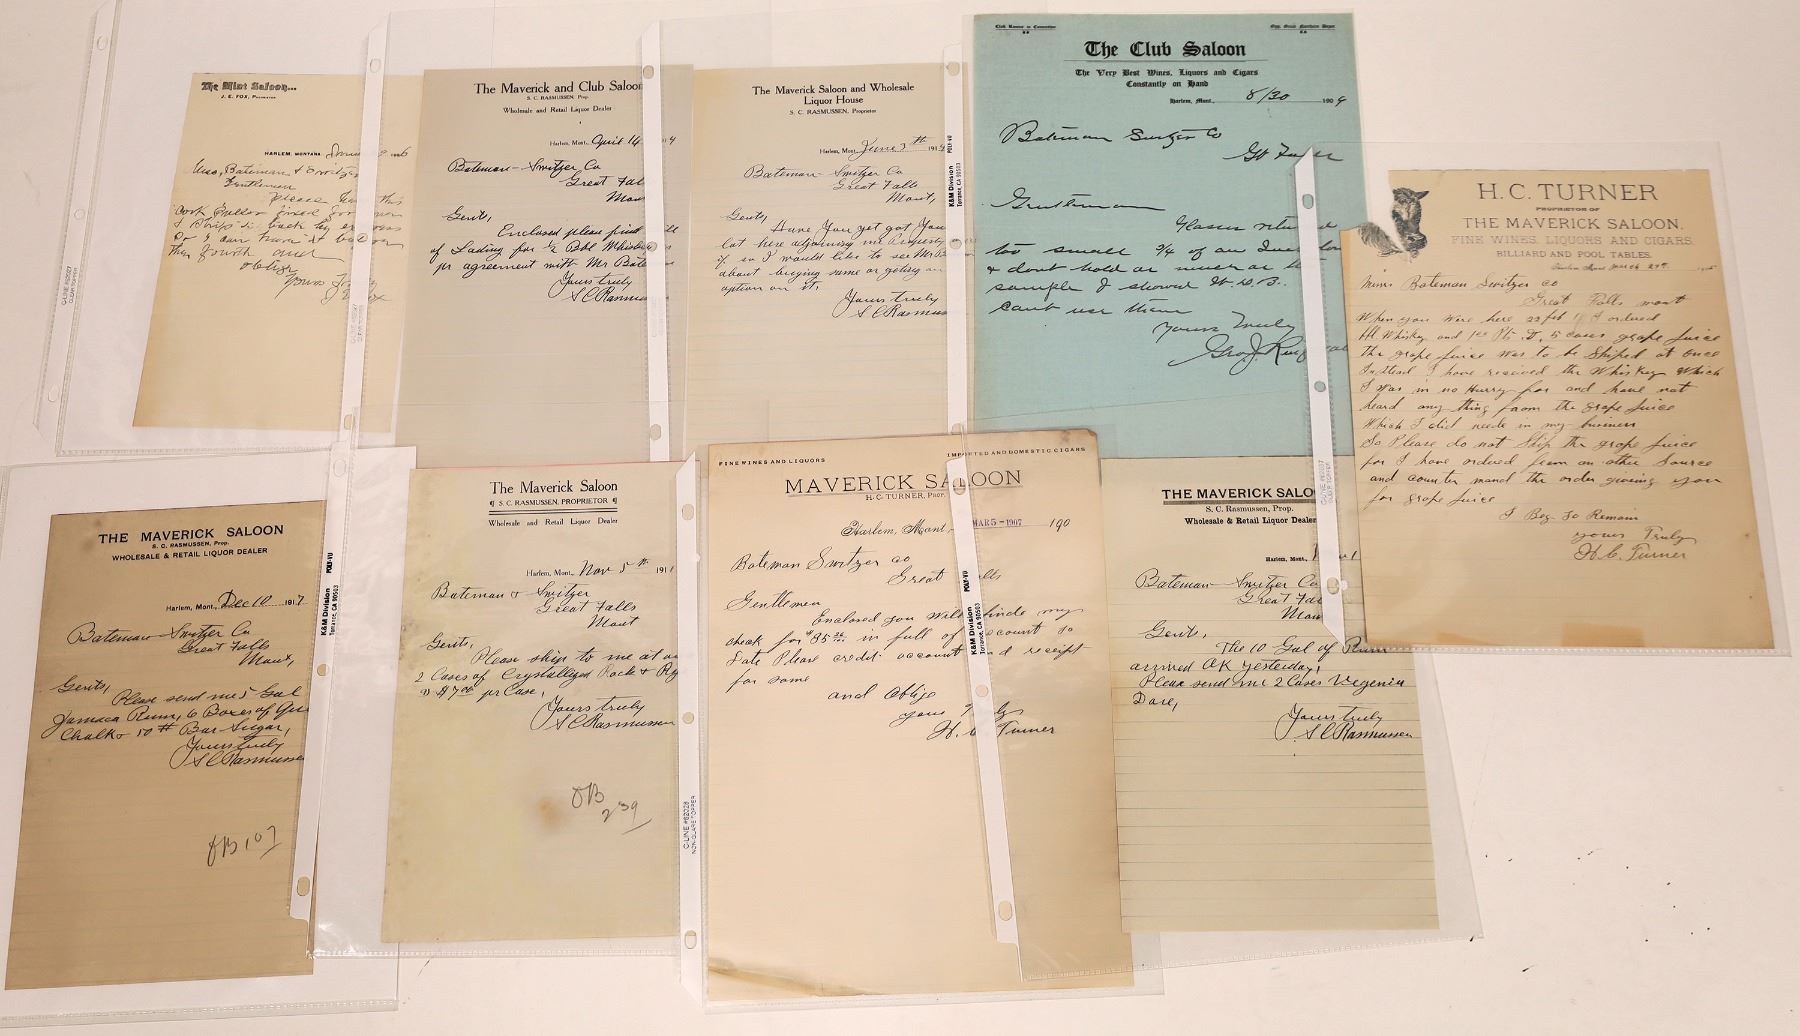 The Mint Saloon...
J. E. FOX, Proprietor
HARLEM, MONTANA
Gentlemen
Please
this
I Ship it back by express
So I can have it before
the fourth and
oblige
Yours
The Maverick and Club Saloon
S. C. RASMUSSEN, Prop.
Wholesale and Retail Liquor Dealer
Harlem, Mont., April 14
Bateman-Switzer Co
Great Fal
Mon
Gents,
Enclosed please find
of Lading for 1/2 Bbl Whis
pr agreement with Mr Bate
Yours truly
S C Rasmus
The Maverick Saloon and Wholesale
Liquor House
S. C. RASMUSSEN, Proprietor
Harlem, Mont., June 3th 191
Bateman-Switzer Co
Great Falls
Mont,
Gents,
Have You got got You
lot here adjoining me Property
if so I would like to see Mr B
about buying same or geting an
option on it,
Yours truly
S C Rasmus
Club Rooms in Connection
Opp. Great Northern Depot
The Club Saloon
The Very Best Wines, Liquors and Cigars
Constantly on Hand
Harlem, Mont., 8/30 190
Bateman Switzer Co
Gt Falls
Gentleman
Glasses retur
too small 3/4 of an Inch
& dont hold as much as
sample I showed W.S.B.
cant use them
Yours Truly
Geo. J.
H. C. TURNER
PROPRIETOR OF
THE MAVERICK SALOON,
FINE WINES, LIQUORS AND CIGARS.
BILLIARD AND POOL TABLES.
Harlem Mont March 27th
Bateman Switzer co
Great Falls mont
When you were here 22 feb I ordered
Whiskey and 5 cases grape juice
the grape juice was to be Shiped at once
Instead I have received the Whiskey which
I was in no Hurry for and have not
heard any thing from the grape juice
Which I did neede in my business
So Please do not Ship the grape juice
for I have ordered from an other source
and counter mand the order giveing you
for grape juice
I Beg to Remain
yours Truly
H. C. Turner
THE MAVERICK SALOON
S. C. RASMUSSEN, Prop.
WHOLESALE & RETAIL LIQUOR DEALER
Harlem, Mont., Dec 10 1917
Bateman-Switzer Co
Great Falls
Mont,
Gents,
Please send me 5 Gal
Jamaca Rum, 6 Boxes of
Chalk & 50 # Bar Sugar,
Yours truly
S C Rasmussen
OB 107
The Maverick Saloon
¶ S. C. RASMUSSEN, PROPRIETOR ¶
Wholesale and Retail Liquor Dealer
Harlem, Mont., Nov 5th 1911
Bateman & Switzer
Great Falls
Mont
Gents,
Please ship to me at
2 Cases of Crystallized Rock & Ry
@ $7.00 pr Case,
Yours truly
S C Rasmussen
OB
239
FINE WINES AND LIQUORS
IMPORTED AND DOMESTIC CIGARS
MAVERICK SALOON
H. C. TURNER, Prop.
Harlem, Mont., MAR 5-1907 190
Bateman Switzer co
Great Falls
Gentlemen
Enclosed you will finde my
check for $85 in full of account to
date Please credit account and receipt
for same
and oblige
yours
H. C. Turner
THE MAVERICK SALO
S. C. Rasmussen, Prop.
Wholesale & Retail Liquor Dealer
Harlem, Mont.,
Bateman-Switzer Co
Great Fal
Mon
Gents,
The 10 Gal of Rum
arrived OK Yesterday,
Please send me 2 Cases Vegenia
Dare,
Yours truly
S C Rasmussen
K&M Division
Torrance, CA 90503
POLY-VU
K&M Division
Torrance, CA 90503
POLY-VU
K&M Division
Torrance, CA 90503
POLY-VU
C-LINE #62028
NON-GLARE TOPPER